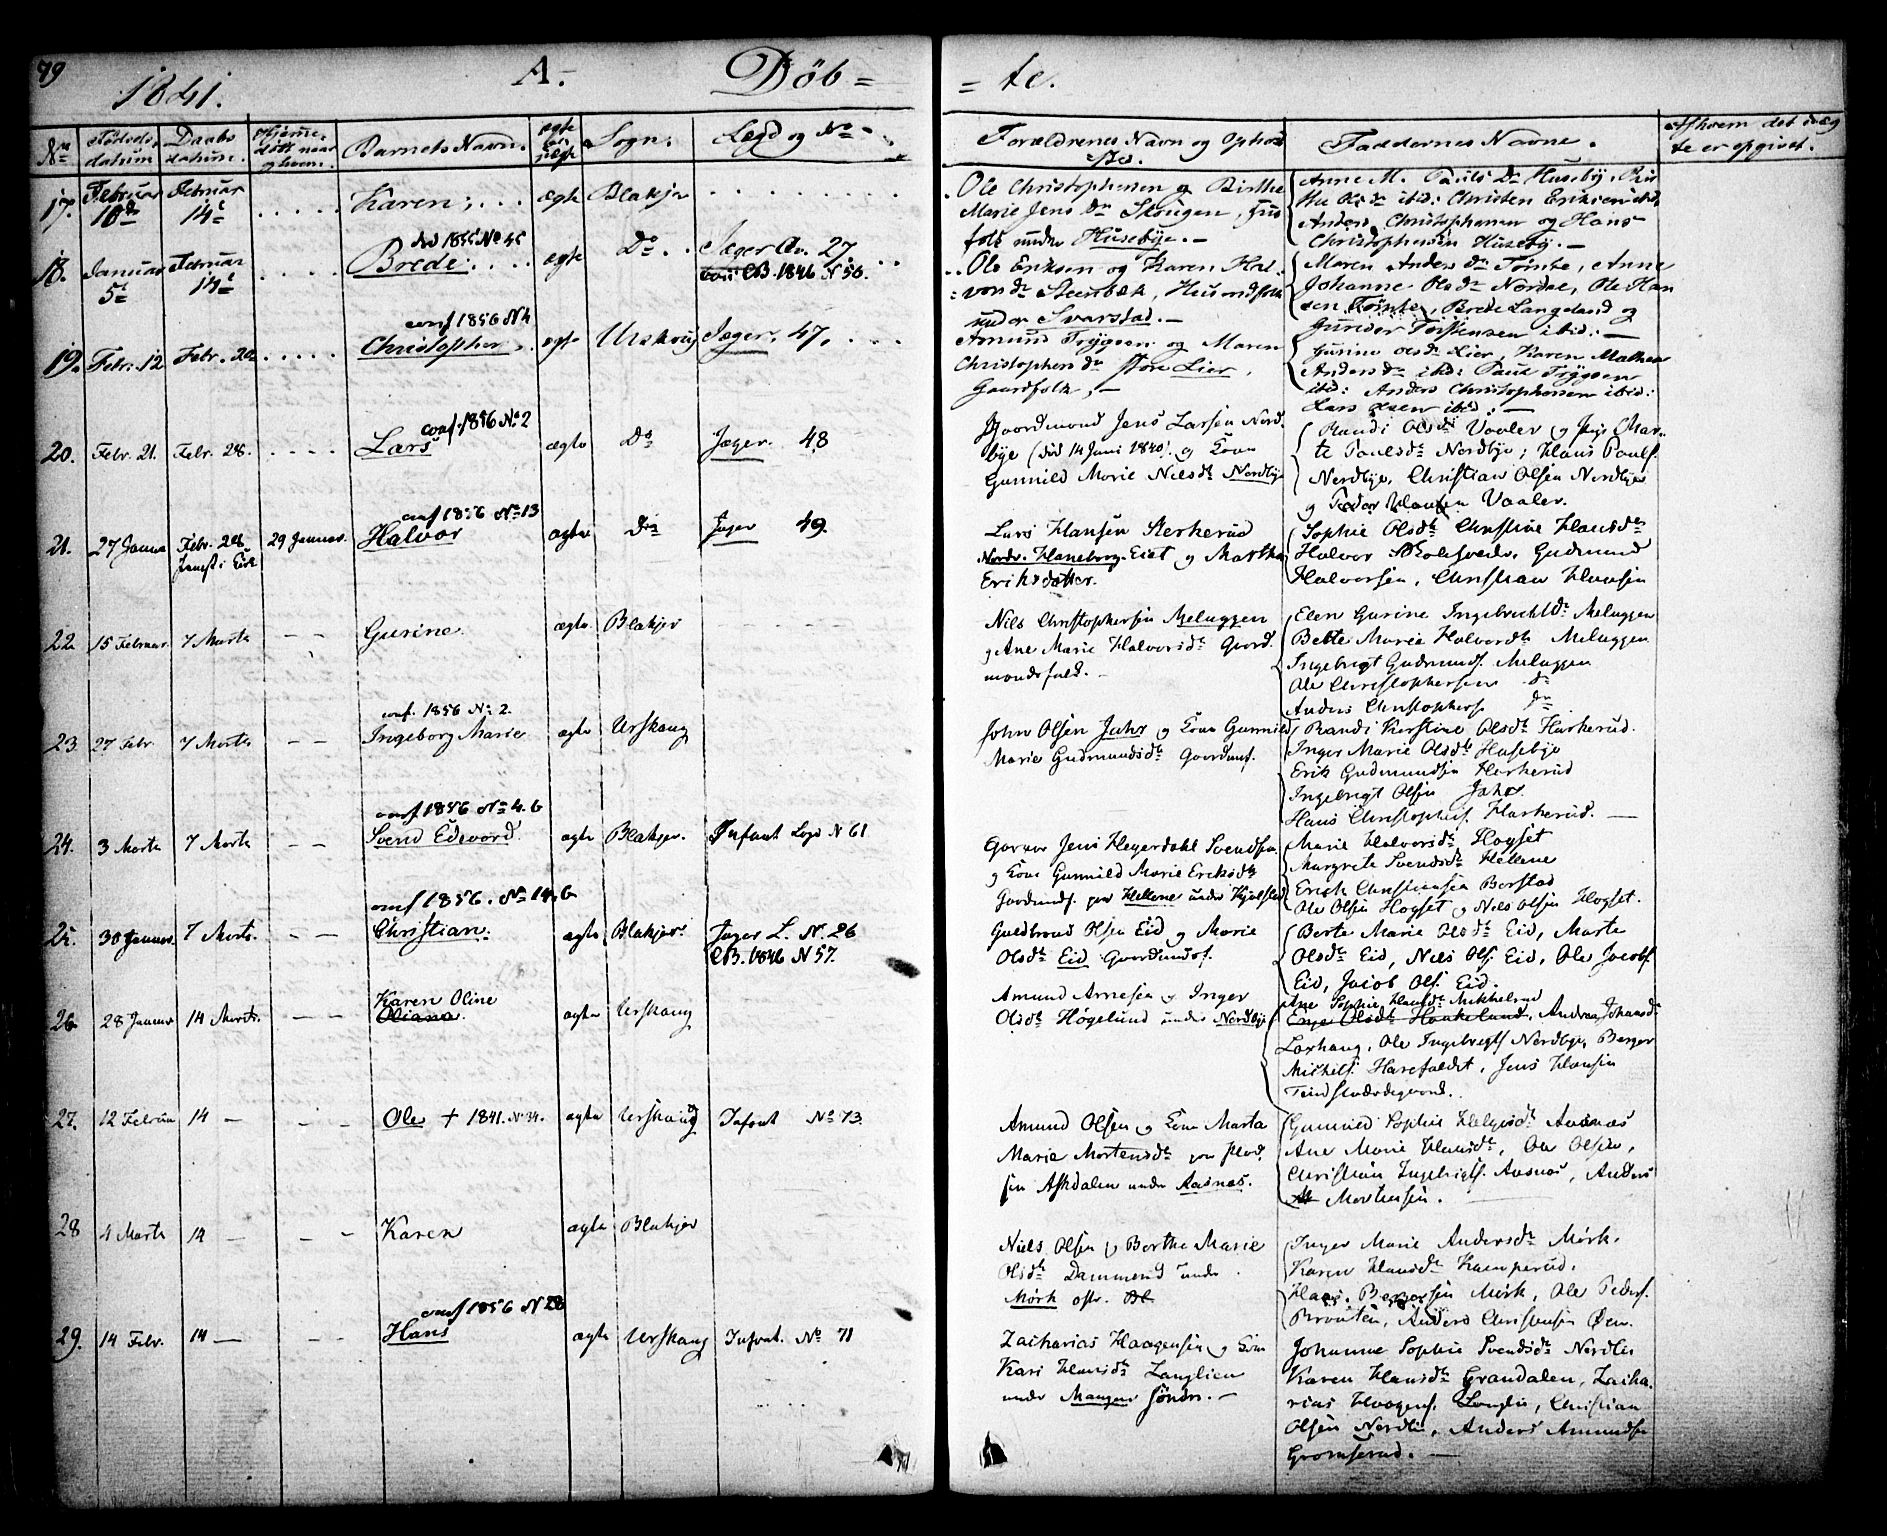 79
1841.
A.
Döb= =te.
No
Fødsels datum.
Daabs datum.
Hjemme døbt naar og hvem.
Barnets Navn.
ægte eller uægte
Sogn.
Lægd og No
Forældrenes Navn og Opholdssted.
Faddernes Navne.
Afhvem det uæg te er opgivet.
17. Februar 10de Februar 14de Karen; ægte Blakjer
Ole Christophersen og Birthe
Marie Jens Dr Skougen, Hus
folk under Husebye. —
Anne M. Pauls Dr Husebÿ,
Ols dr ibid: Christen Eriksen ibid,
Anders Christophersen og Hans
Christophersen Husebÿ. —
18. Januar 5te Februar 14de Brede: ægte Do. Jæger Av. 27.
CB. 1846 N 50.
Ole Eriksen og Karen Hal
vors dr Steenbæk, Husmdfolk
under Svarstad. —
Maren Anders dr Tømte, Anne
Johanne Ols dr Nordal, Ole Han
sen Tømte, Brede Langeland og
Gunder Torstensen ibid: —
conf 1856 N 4
19. Febr. 12 Febr. 20 Christopher. ægte Urskoug Jæger. 47.
Amund Tryggsen og Maren
Christophers dr store Lier,
Gaardfolk, —
Gurine Ols dr Lier, Karen Mathea
Anders dr ibid: Paul Tryggsen
ibid: Anders Christophersen ibid:
Lars Olsen ibid: —
conf. 1856 No 2
20. Febr. 21. Febr. 28. Lars ægte Do Jæger. 48.
Gaardmand Jens Larsen Nord
bye (død 14 Juni 1840) og Kone
Gunnild Marie Nielsdr Nordbye
Randi Olsdr Vaaler og Inge Mar-
te Paulsdr Nordbye; Hans Pauls.
Nordbye, Christian Olsen Nordbye
og Peder Hansen Vaaler.
conf 1856 No 13
21. 27 Januar Febr. 28 29 Januar. Halvor ægte Do Jæger 49.
Lars Hansen Sterkerud
Nordr. Haneborg. Eiet og Martha
Eriksdatter.
Sophie Olsdtr Christine Hansdtr
Halvor Gudmund
Halvorsen, Christian Hansen
22. 15 Februar. 7 Marts Gurine ægte Blakjer
Nils Christophersen Melnggen
og Ane Marie Halvorsdr Gaard
mandsfolk. —
Elen Gurine Ingebrechtdr Melnggen
Berte Marie Halvordr Melnggen
Ingebrigt Gudmunds. Melnggen
Ole Christophersen do
Anders Christophers. do
conf. 1856 No 2.
23 27 Febr. 7 Marts Ingeborg Marie ægte Urskoug
John Olsen Jahr og Kone Gunnild
Marie Gudmundsdr Gaardmf.
Randi Kirstine Olsdr Harkerud.
Inger Marie Olsdr Husebye
Erik Gudmundsen Harkerud
Ingebrigt Olsen Jahr
Hans Christophers. Harkerud. —
conf 1856 No 4. b
24. 3 Marts 7 Marts Svend Edevard. ægte Blakjer. Infant Lægd N 61
Jens Heyerdahl Svendsen
og Kone Gunnild Marie Eriksdr
Gaardmdf. paa Hellene under Kjelstad
Marie Halvorsdr Hogset
Margrete Svendsdr Hellene
Erick Christiansen Berstad
Ole Olsen Hogset og Nils Olsen Hogset.
conf 1856. No 14. b
25. 30 Januar. 7 Marts. Christian. ægte Blakjer Jæger L. N. 26
CB. 1846 N 57.
Guldbrand Olsen Eid og Marie
Olsdr Eid Gaardmandsf.
Berte Marie Olsdr Eid, Marte
Olsdr Eid, Niels Ols. Eid, Ole Jacobs.
Eid, Jacob Ols. Eid.
26 28 Januar 14 Marts. Karen Oline
Oliana. ægte Urskoug
Amund Arnesen og Inger
Olsdr Høgelund under Nordbye
Ane Sophie Hansdr Mikkelrud
Olsdr Haakelund, Andrea Johansdr
Laxhaug, Ole Ingebrigts. Nordbye, Berger
Michels. Harefaldet, Jens Hansen
27. 12 Februar 14 — Ole + 1841. No 34. ægte Urskoug Infant No 73.
Amund Olsen og Kone Marta
Marie Mortensdr paa
Askdalen under Aasnæs.
Gunnild Sophie Helgesdr Aasnæs
Ane Marie Hansdr, Ole Olsen,
Christian Ingebrigts. Aasnæs, Anders
Mortensen.
28 4 Marts 14 — Karen ægte Blakjer
Niels Olsen og Berthe Marie
Olsdr Dammerud under
Mørk østr.
Inger Marie Andersdr Mørk.
Karen Hansdr Kamperud.
Hans Bergersen Mörk, Ole Peders.
Braaten, Anders Christensen Øen.
conf 1856 N 28
29. 14 Febr. 14 — Hans ægte Urskoug Infant. No 71
Zacharias Haagensen og Kone
Kari Hansdr Langlien
under Mangen søndr. —
Johanne Sophie Svendsdr Nordlie
Karen Hansdr Grandalen, Zacha-
rias Haagens. Langlie, Christian
Olsen Nordlie, Anders Amundsen
Gromserud. —